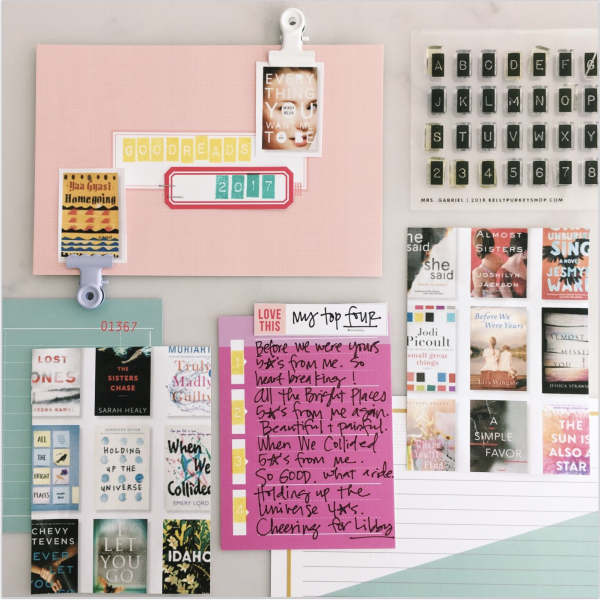 EVERY
THING
YOU
MINDY
WANT ME
TO BE
GOODREADS
2017
Yaa Gyasi
Homegoing
A B C D E F
J K L M N O P
S T U V W X Y
2 3 4 5 6 7 8
MRS. GABRIEL | 2018 KELLYPURKEYSHOP.COM
she
said
she
said
ALMOST
SISTERS
JOSHILYN
JACKSON
SING
A NOVEL
JESMYN
WARD
Jodi
Picoult
small great
things
Before We
Were Yours
Lisa Wingate
ALMOST
MISSED
YOU
JESSICA STRAWSER
Where
You'll Find
A
SIMPLE
FAVOR
THE
SUN IS
ALSO A
STAR
01367
LOST
THE
SISTERS
CHASE
SARAH HEALY
MORIARTY
Truly
Madly
Guilty
ALL
THE
BRIGHT
PLACES
HOLDING
UP THE
UNIVERSE
When
We
Collided
EMERY LORD
CHEVY
STEVENS
NEVER
LET YOU
GO
I
LET
YOU
GO
IDAHO
LOVE
THIS
My top four
1
Before we were yours
5☆'s from me. So
heart breaking!
2
All the Bright Places
5☆'s from me again.
Beautiful + painful.
3
When We Collided
5☆'s from me.
So GOOD. what a ride.
4
Holding up the
Universe 4☆'s.
Cheering for Libby